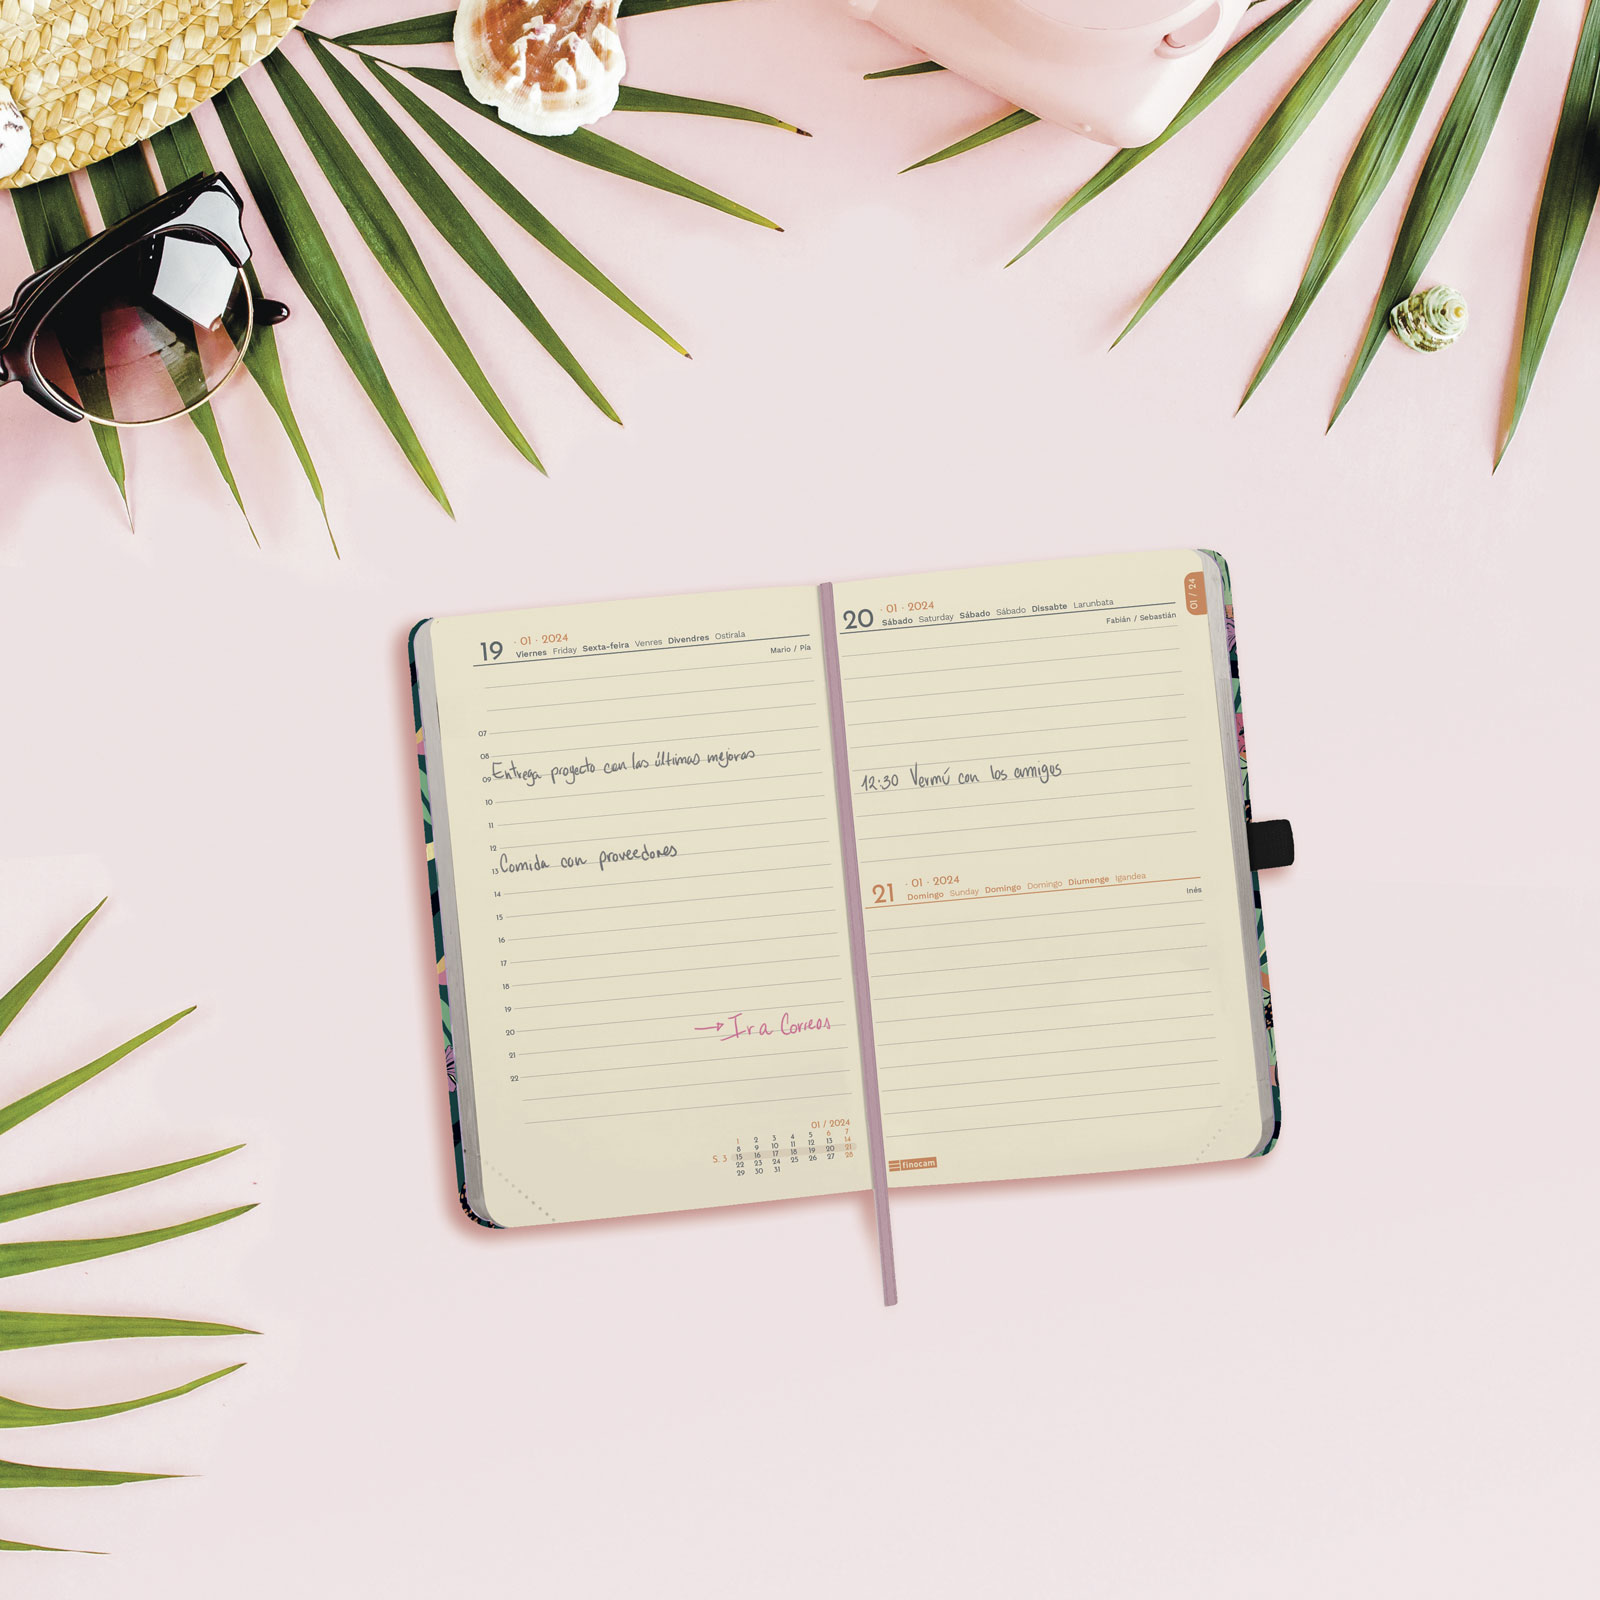 19 · 01 · 2024
Viernes Friday Sexta-feira Venres Divendres Ostirala
Mario / Pía
07
08
09 Entrega proyecto con las últimas mejoras
10
11
12
13 Comida con proveedores
14
15
16
17
18
19
20 → Ir a Correos
21
22
01 / 2024
1 2 3 4 5 6 7
8 9 10 11 12 13 14
S. 3 15 16 17 18 19 20 21
22 23 24 25 26 27 28
29 30 31
01 / 24
20 · 01 · 2024
Sábado Saturday Sábado Sábado Dissabte Larunbata
Fabián / Sebastián
12:30 Vermú con los amigos
21 · 01 · 2024
Domingo Sunday Domingo Domingo Diumenge Igandea
Inés
finocam